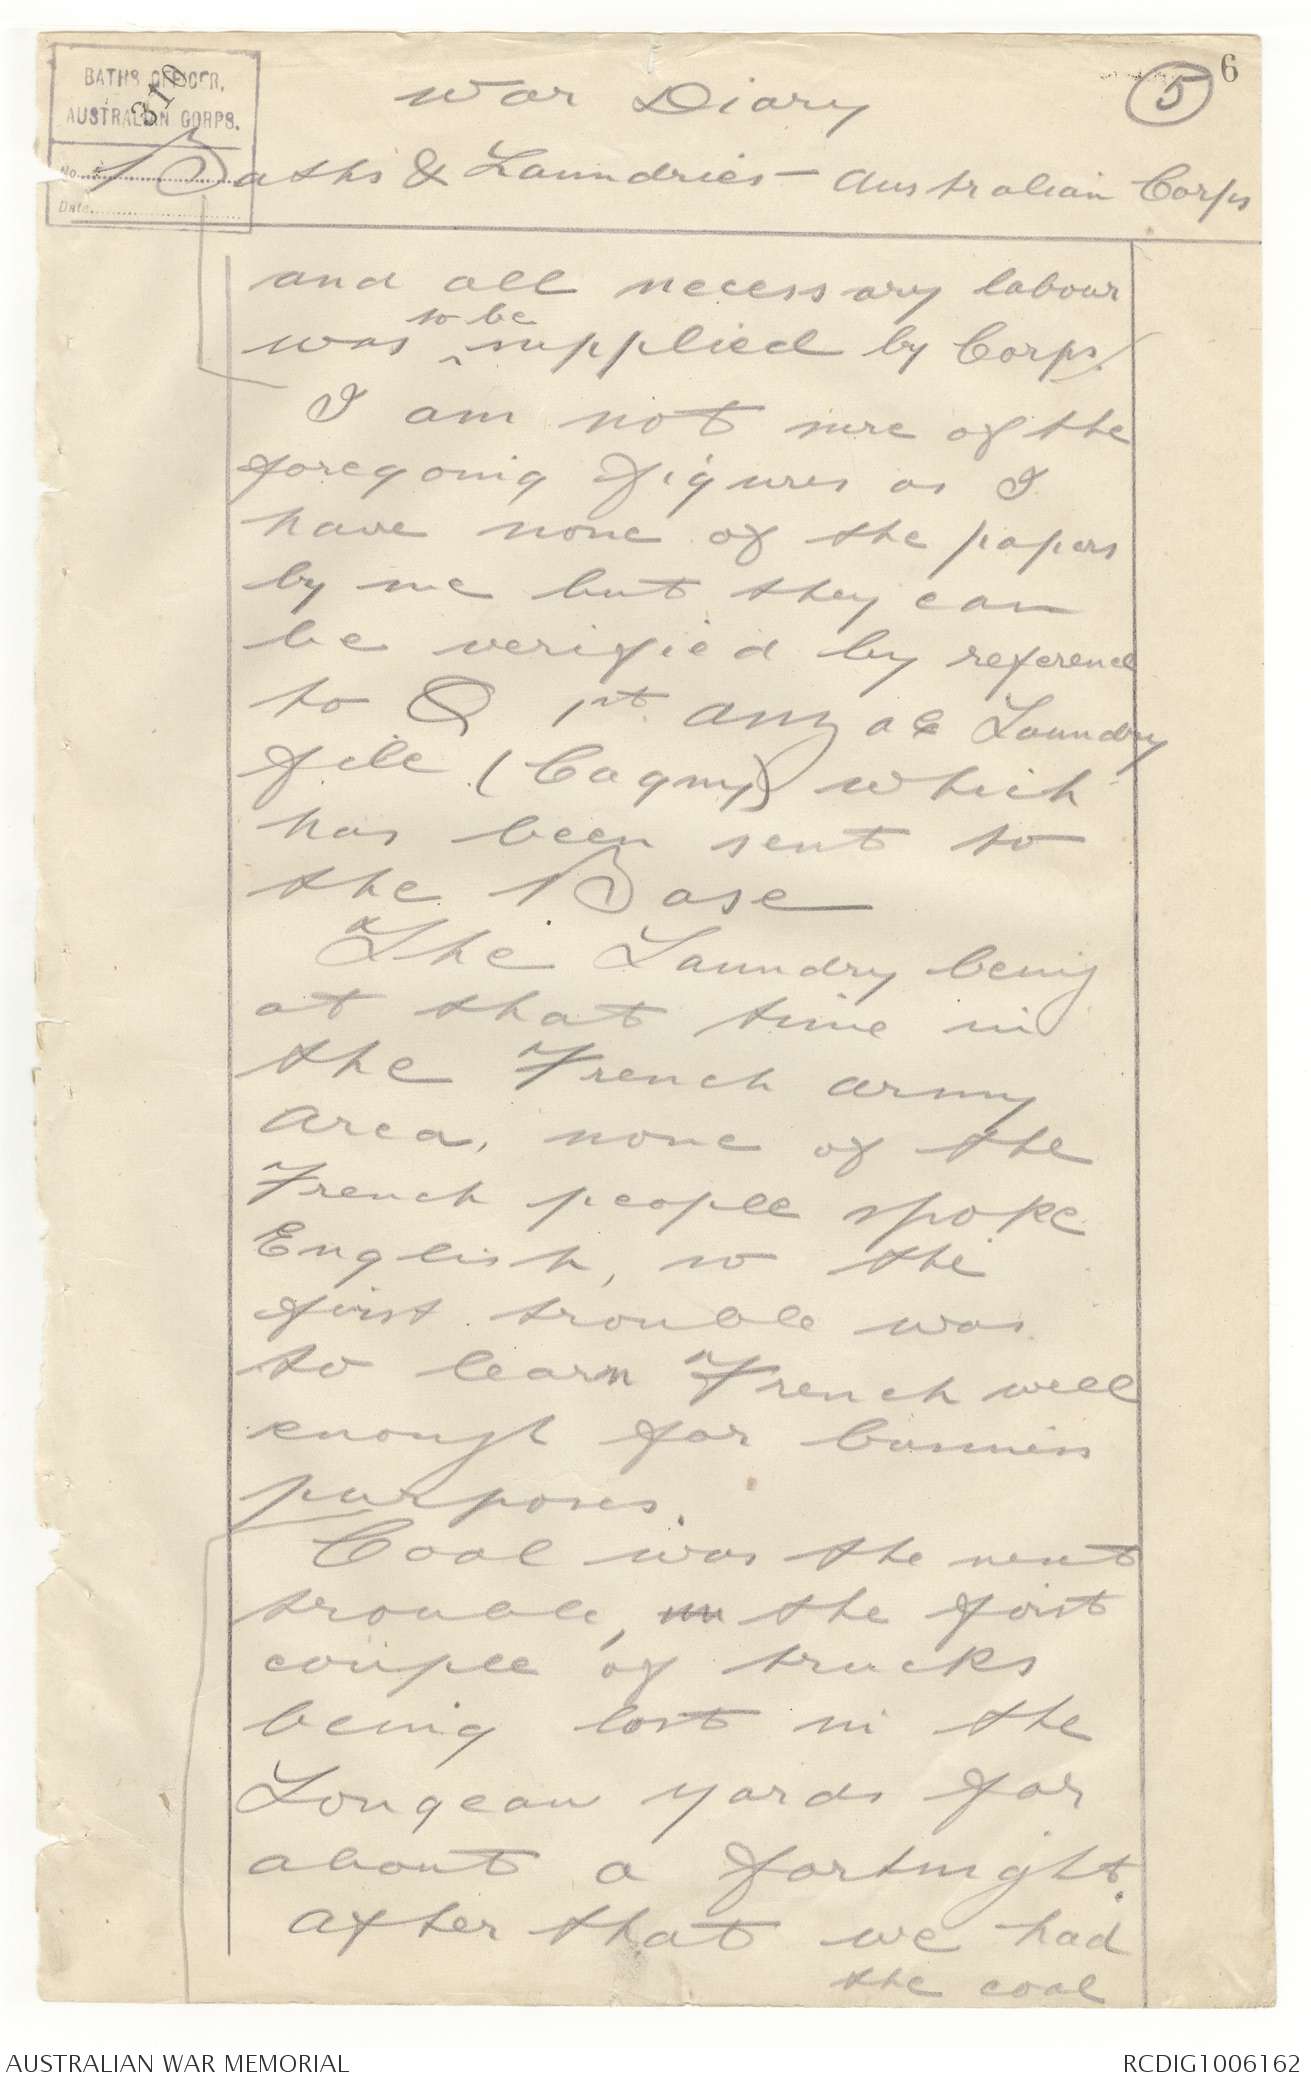 BATHS OFFICER,
AUSTRALIAN CORPS.
310
No.
Date
6
5
War Diary
Baths & Laundries - Australian Corps
and all necessary labour
to be
was supplied by Corps.
I am not sure of the
foregoing figures as I
have none of the papers
by me but they can
be verified by reference
to Q 1st Anzac Laundry
file (Cagny) which
has been sent to
the Base
The Laundry being
at that time in
the French army
area, none of the
French people spoke
English, so the
first trouble was
to learn French well
enough for business
purposes.
Coal was the next
trouble, the first
couple of trucks
being lost in the
Longeau yards for
about a fortnight.
After that we had
the coal
AUSTRALIAN WAR MEMORIAL
RCDIG1006162